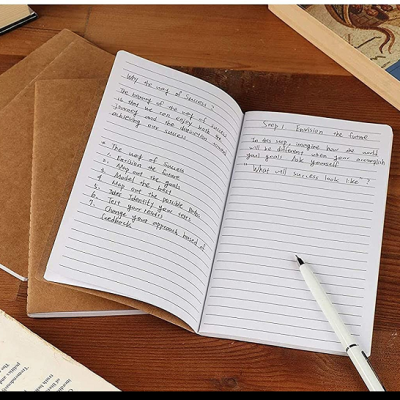 Why the way of success?
The
of the way of success
is that we can enjoy both the
journey and the
achieving our success
* The way of success
1. Envision the future
2. Map out the goals
3. Model the best
4. Map out the possible
5. Identify your
6. Test your
7. Change your approach based of
feedback
Step 1 Envision the future
In this step, imagine how the world
will be different when your accomplish
your goals Ask yourself
"What will success look like"?